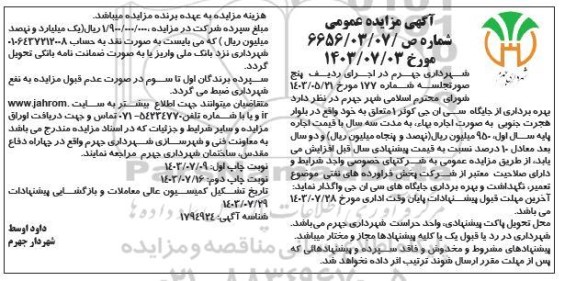 آگهی مزایده عمومی
شماره ص /۶۶۵۶/۰۳/۰۷
مورخ ۱۴۰۳/۰۷/۰۳
شهرداری جهرم در اجرای ردیف پنج
صورتجلسه شماره ۱۷۷ مورخ ۱۴۰۳/۰۵/۲۱
شورای محترم اسلامی شهر جهرم در نظر دارد
بهره برداری از جایگاه سی ان جی کوثر ۱ متعلق به خود واقع در بلوار
هجرت جنوبی به صورت اجاره بهای به مدت سه سال با قیمت اجاره
پایه سال اول، ۹۵۰ میلیون ریال(نهصد و پنجاه میلیون ریال) و دو سال
بعد معادل ۱۰ درصد نسبت به قیمت پیشنهادی سال قبل افزایش می
یابد، از طریق مزایده عمومی به شرکتهای خصوصی واجد شرایط و
دارای صلاحیت معتبر از شرکت پخش فراورده های نفتی موضوع
تعمیر، نگهداشت و بهره برداری جایگاه های سی ان جی واگذار نماید:
آخرین مهلت قبول پیشنهادات پایان وقت اداری مورخ ۱۴۰۳/۰۷/۲۸
می باشد.
محل تحویل پاکت پیشنهادی، واحد حراست شهرداری جهرم می‌باشد.
شهرداری در رد یا قبول یک یا کلیه پیشنهادها مجاز و مختار میباشد.
پیشنهادهای مشروط و مخدوش و فاقد سپرده و پیشنهادهائی که
پس از مهلت مقرر ارسال شوند ترتیب اثر داده نخواهد شد.
هزینه مزایده به عهده برنده مزایده میباشد.
مبلغ سپرده شرکت در مزایده ۱/۹۰۰/۰۰۰/۰۰۰ ریال(یک میلیارد و نهصد
میلیون ریال ) که می بایست به صورت نقد به حساب ۰۱۰۶۴۳۷۲۱۲۰۰۸
شهرداری نزد بانک ملی واریز یا به صورت ضمانت نامه بانکی تحویل
گردد.
سپرده برندگان اول تا سوم در صورت عدم قبول مزایده به نفع
شهرداری ضبط می گردد.
متقاضیان میتوانند جهت اطلاع بیشتر به سایت www.jahrom.
ir و یا با شماره تلفن۵۴۲۳۴۷۷۰-۰۷۱ تماس و جهت دریافت اوراق
مزایده و سایر شرایط و جزئیات که در اسناد مزایده مندرج می باشد
به معاونت فنی و شهرسازی شهرداری جهرم واقع در چهاراه دفاع
مقدس، ساختمان شهرداری جهرم مراجعه نمایند.
نوبت چاپ اول: ۱۴۰۳/۰۷/۰۹
نوبت چاپ دوم: ۱۴۰۳/۰۷/۱۶
تاریخ تشکیل کمیسیون عالی معاملات و بازگشایی پیشنهادات
۱۴۰۳/۰۷/۲۹
شناسه آگهی: ۱۷۹۴۹۲۴
داود اوسط
شهردار جهرم